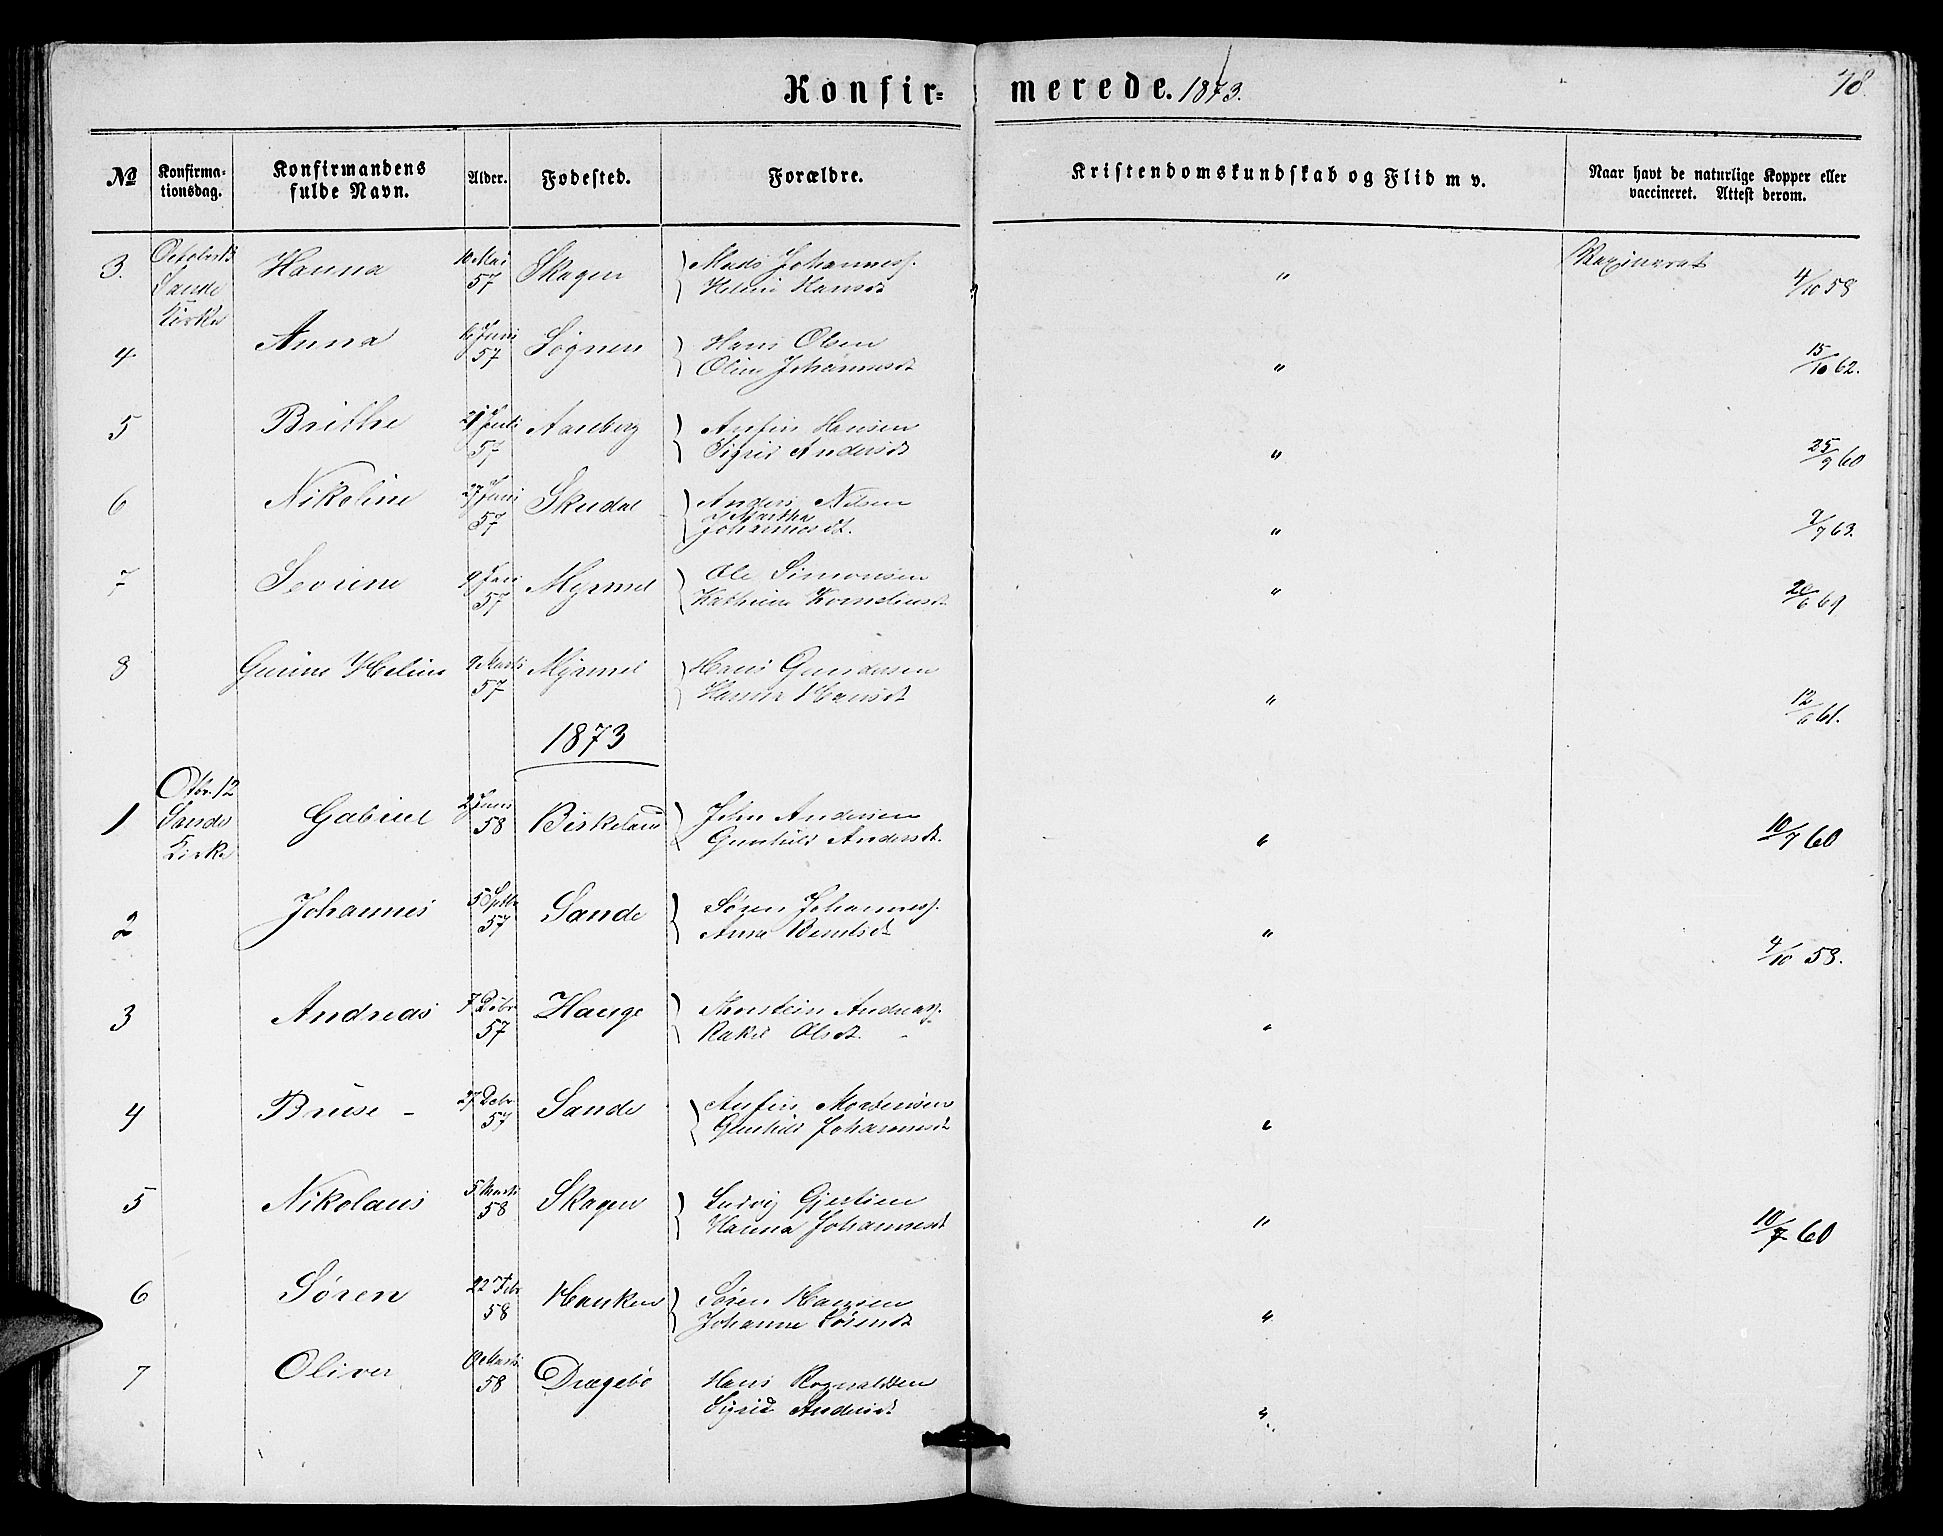 Konfirmerede. 1873. 48.
№ Konfirmationsdag. Konfirmandens fulde Navn. Alder. Fødested. Forældre. Kristendomskundskab og Flid m v. Naar havt de naturlige Kopper eller vaccineret. Attest derom.
3. October Sande Kirke Hanna Mai 57 Skagen Mads Johanness. Helene Hansdt " Vaxineret 4/10 58
4. Anna 6 Juni 57 Søgnen Hans Olsen Oline Johannesdt " 15/10 62.
5 Brithe Juli 57 Aarberg Anfin Hansen Sigrid Andersdt " 25/9 60
6 Nikoline 27 Juni 57 Skudal Anders Nilsen Martha Johannesdt. " 2/7 63.
7 Sevrine 9 Juni 57 Myrmel Ole Simonsen Kathrine Korneliusdt " 20/6 61
8 Gurine Heline 9 Marts 57 Myrmel Hans Gundersen Hanna Hansdt " 12/6 61.
1873
1 Otbr. 12 Sande Kirke Gabriel 2 Juni 58 Birkeland John Andersen Gunhild Andersdt. " 10/7 60
2 Johannes 5 Sptbr 57 Sande Søren Johanness. Anna Bentsdt " 4/10 58.
3 Andreas 7 Debr 57 Hauge Thorstein Andreass. Rakel Olsdt. "
4 Bruse - 27 Debr 57 Sande Anfin Mortensen Gunhild Johannesdt "
5 Nikolaus 5 Marts 58 Skagen Ludvig Gjertsen Hanna Johannesdt " 10/7 60
6 Søren 22 Febr 58 Hauken Søren Hansen Johanne Sørendt "
7 Oliver Marts 58 Drægebø Hans Rognaldsen Sigrid Andersdt "